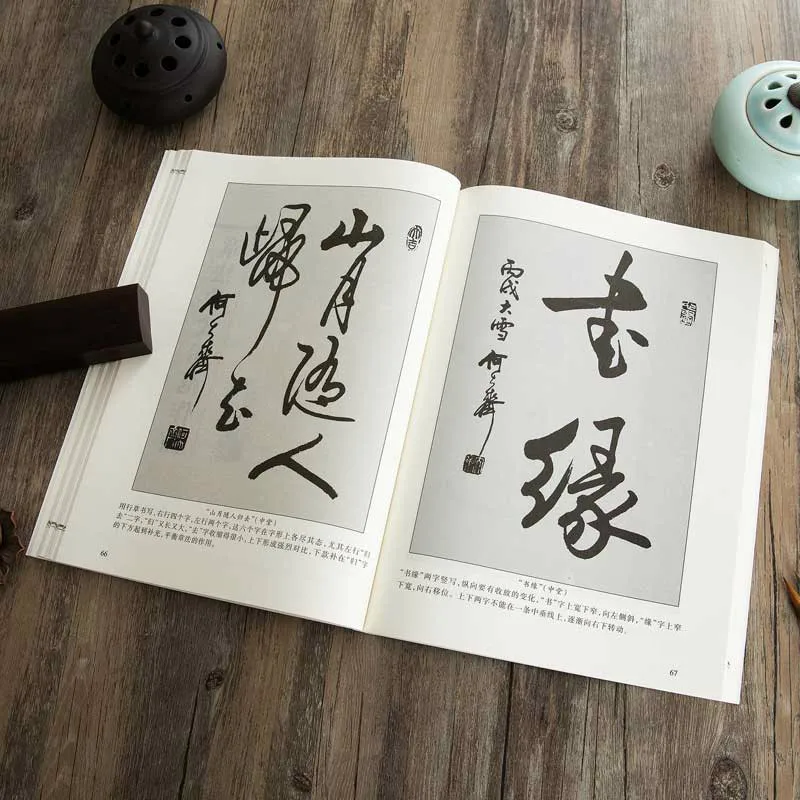 山月随人
歸去
何之齊
"山月随人归去"(中堂)
用行草书写,右行四个字,左行两个字,这六个字在字形上各尽其态,尤其左行"归
去"二字,"归"又长又大,"去"字收缩得很小,上下形成强烈对比,下款补在"归"字
的下方起到补充,平衡章法的作用。
66
书缘
丙戌大雪
"书缘"(中堂)
"书缘"两字竖写,纵向要有收放的变化,"书"字上宽下窄,向左侧斜,"缘"字上窄
下宽,向右移位。上下两字不能在一条中垂线上,逐渐向右下转动。
67